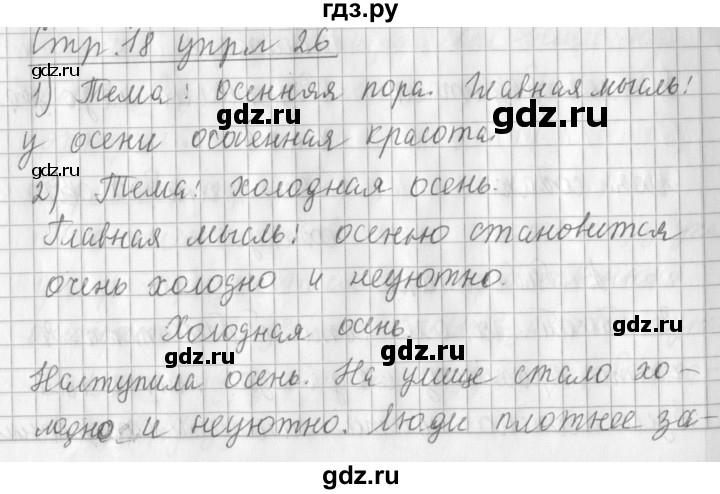 гдз.ру
Стр. 18 упр 26
gdz.ru
gdz.ru
1) Тема: осенняя пора. Главная мысль:
gdz.ru
gdz.ru
у осени особенная красота.
gdz.ru
2) Тема: холодная осень.
Главная мысль: осенью становится
очень холодно и неуютно.
Холодная осень.
gdz.ru
gdz.ru
Наступила осень. На улице стало хо-
лодно и неуютно. Люди плотнее за-
gdz.ru
gdz.ru
gdz.ru